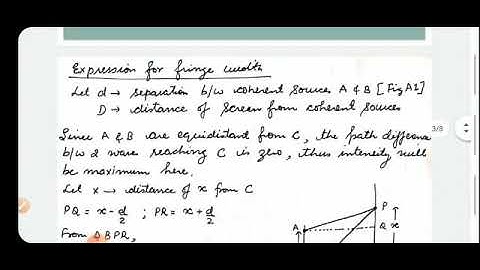 Expression for fringe width
Let d → separation b/w coherent sources A & B [Fig A1]
D → distance of screen from coherent sources
Since A & B are equidistant from C, the path difference
b/w 2 waves reaching C is zero, thus intensity will
be maximum here.
Let x → distance of x from C
PQ = x - d/2 ; PR = x + d/2
From Δ BPR,
P
A
Q
x
3/3